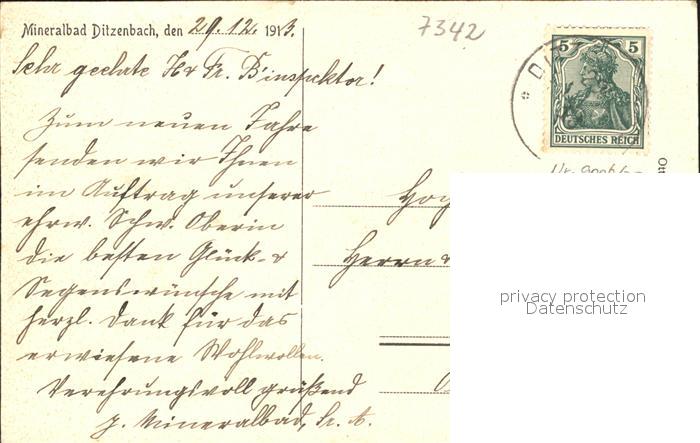 Mineralbad Ditzenbach, den 29.12. 1913.
7342
Sehr geehrte H & Fr. B'inspektor!
5 5
D
DEUTSCHES REICH
Zum neuen Jahre
senden wir Ihnen
im Auftrag unserer
ehrw. Schw. Oberin
die besten Glück- &
Segenswünsche mit
herzl. Dank für das
erwiesene Wohlwollen.
Verehrungsvoll grüßend
z. Mineralbad, Sr. A.
Herrn &
privacy protection
Datenschutz